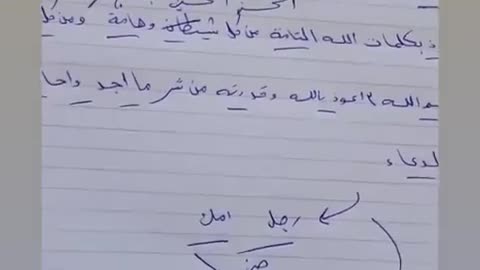 ذ بكلمات الله التامة من كل شيطان وهامة ومن كل
م الله ٣ اعوذ بالله وقدرته من شر ما اجد واحا
لدعاء
رجل امك